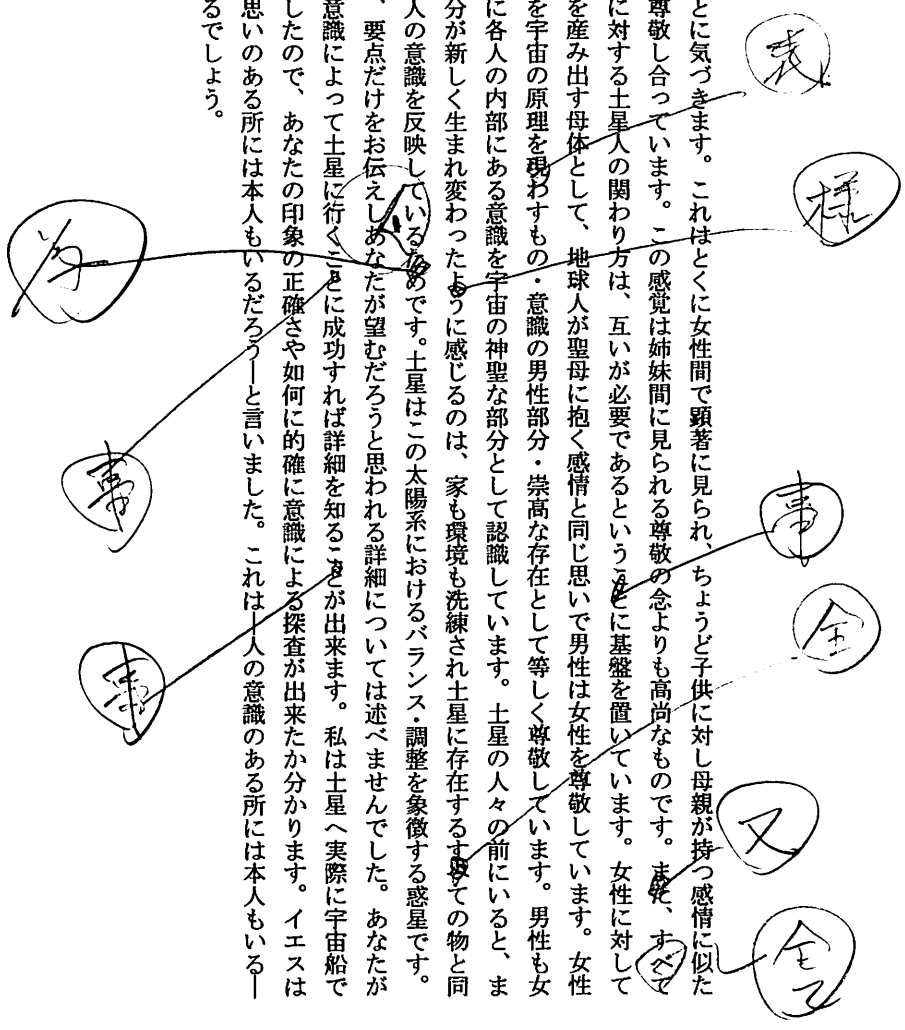 とに気づきます。これはとくに女性間で顕著に見られ、ちょうど子供に対し母親が持つ感情に似た
尊敬し合っています。この感覚は姉妹間に見られる尊敬の念よりも高尚なものです。また、すべて
に対する土星人の関わり方は、互いが必要であるということに基盤を置いています。女性に対して
を産み出す母体として、地球人が聖母に抱く感情と同じ思いで男性は女性を尊敬しています。女性
を宇宙の原理を現わすもの・意識の男性部分・崇高な存在として等しく尊敬しています。男性も女
に各人の内部にある意識を宇宙の神聖な部分として認識しています。土星の人々の前にいると、ま
分が新しく生まれ変わったように感じるのは、家も環境も洗練され土星に存在するすべての物と同
人の意識を反映しているためです。土星はこの太陽系におけるバランス・調整を象徴する惑星です。
、要点だけをお伝えしあなたが望むだろうと思われる詳細については述べませんでした。あなたが
意識によって土星に行くことに成功すれば詳細を知ることが出来ます。私は土星へ実際に宇宙船で
したので、あなたの印象の正確さや如何に的確に意識による探査が出来たか分かります。イエスは
思いのある所には本人もいるだろう―と言いました。これは―人の意識のある所には本人もいる―
るでしょう。
表
様
事
全
又
全て
事
事